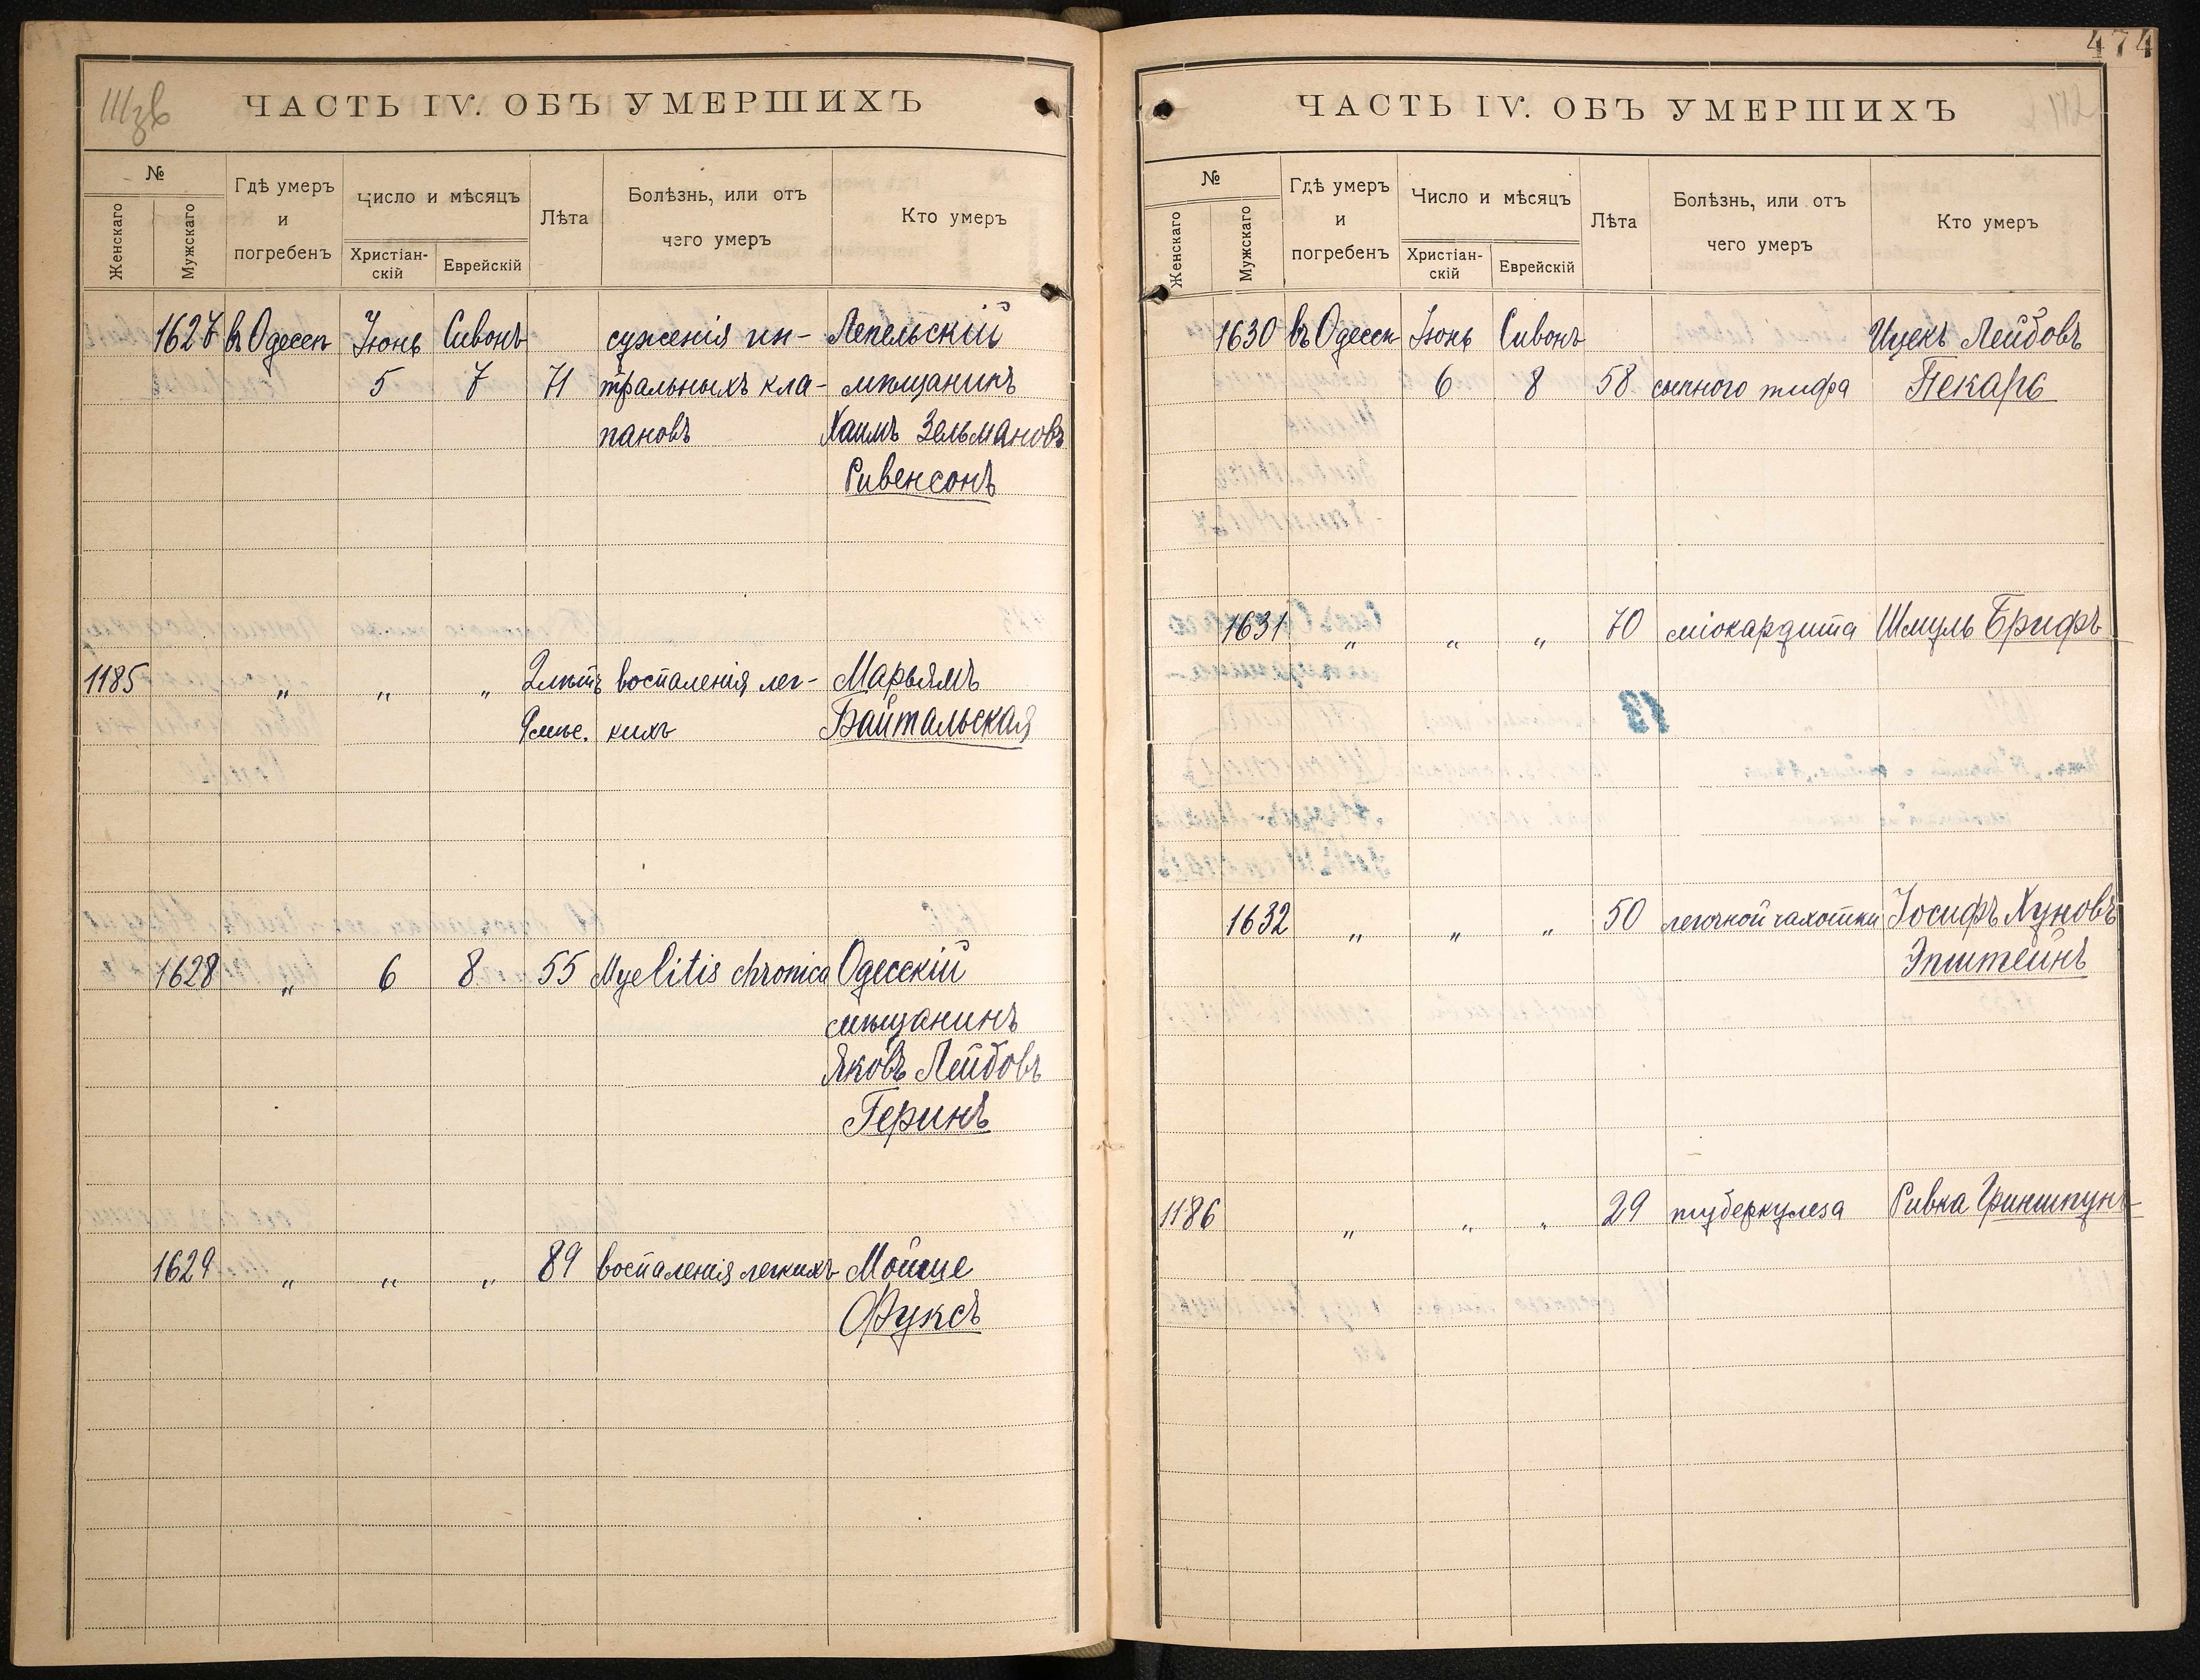 474
ЧАСТЬ IV. ОБЪ УМЕРШИХЪ
№
Женскаго
Мужскаго
Гдѣ умеръ
и
погребенъ
Число и мѣсяцъ
Христіан-
скій
Еврейскій
Лѣта
Болѣзнь, или отъ
чего умеръ
Кто умеръ
1627 въ Одессѣ Іюнь Сивонъ суженія ми- Лепельскій
5 7 71 тральныхъ кла- мѣщанинъ
пановъ Хаимъ Зельмановъ
Ривенсонъ
1185 " " " 2 лѣтъ воспаленія лег- Марьямъ
9 мѣс. кихъ Байтальская
1628 " 6 8 55 Myelitis chronica Одесскій
мѣщанинъ
Яковъ Лейбовъ
Геринъ
1629 " " " 89 воспаленія легкихъ Мойше
Фуксъ
ЧАСТЬ IV. ОБЪ УМЕРШИХЪ
№
Женскаго
Мужскаго
Гдѣ умеръ
и
погребенъ
Число и мѣсяцъ
Христіан-
скій
Еврейскій
Лѣта
Болѣзнь, или отъ
чего умеръ
Кто умеръ
1630 въ Одессѣ Іюнь Сивонъ Ицекъ Лейбовъ
6 8 58 сыпного тифа Пекарь
1631 " " " 70 міокардита Шмуль Брифъ
1632 " " " 50 легочной чахотки Іосифъ Хуновъ
Эпштейнъ
1186 " " " 29 туберкулеза Ривка Финшпунъ